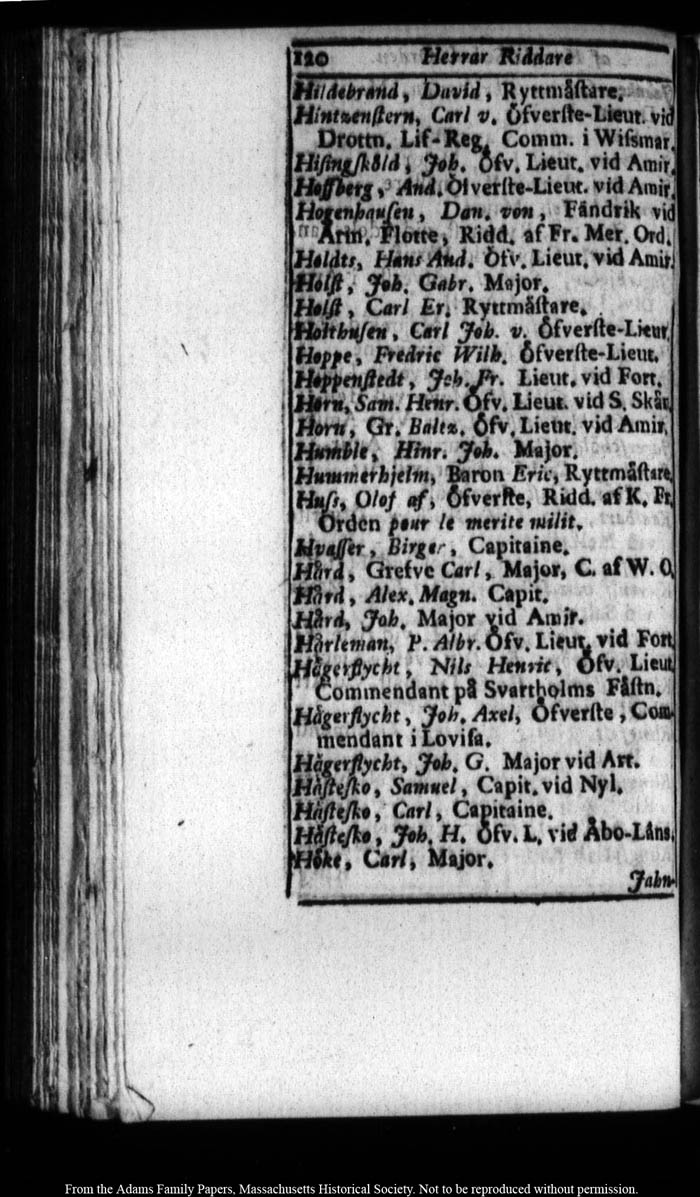 120 Herrar Riddare
Hildebrand, David, Ryttmåſtare.
Hintzenſtern, Carl v. Öfverſte-Lieut. vid
Drottn. Lif-Reg. Comm. i Wiſsmar.
Hiſingſköld, Joh. Öfv. Lieut. vid Amir.
Hoffberg, And. Öfverſte-Lieut. vid Amir.
Hogenhauſen, Dan. von, Fändrik vid
Arm. Flotte, Ridd. af Fr. Mer. Ord.
Holdts, Hans And. Öfv. Lieut. vid Amir.
Holſt, Joh. Gabr. Major.
Holſt, Carl Er. Ryttmåſtare.
Holthuſen, Carl Joh. v. Öfverſte-Lieut.
Hoppe, Fredric Wilh. Öfverſte-Lieut.
Hoppenſtedt, Joh. Fr. Lieut. vid Fort.
Horn, Sam. Henr. Öfv. Lieut. vid S. Skår.
Horn, Gr. Baltz. Öfv. Lieut. vid Amir.
Humble, Hinr. Joh. Major.
Hummerhjelm, Baron Eric, Ryttmåſtare.
Huſs, Olof af, Öfverſte, Ridd. af K. Fr.
Orden pour le merite milit.
Hvaſſer, Birger, Capitaine.
Hård, Grefve Carl, Major, C. af W. O.
Hård, Alex. Magn. Capit.
Hård, Joh. Major vid Amir.
Hårleman, P. Albr. Öfv. Lieut. vid Fort.
Hägerflycht, Nils Henric, Öfv. Lieut.
Commendant på Svartholms Fåſtn.
Hägerflycht, Joh. Axel, Öfverſte, Com-
mendant i Loviſa.
Hägerflycht, Joh. G. Major vid Art.
Håſteſko, Samuel, Capit. vid Nyl.
Håſteſko, Carl, Capitaine.
Håſteſko, Joh. H. Öfv. L. vid Åbo-Låns.
Höke, Carl, Major.
Jahn-
From the Adams Family Papers, Massachusetts Historical Society. Not to be reproduced without permission.